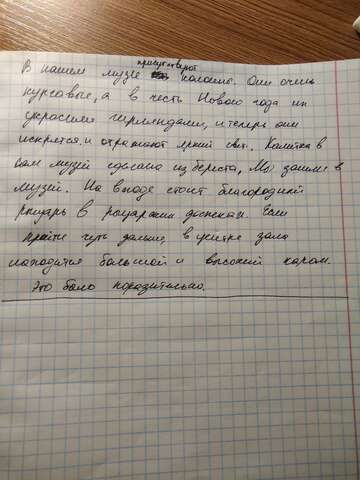 присутствуют
В нашем музее колонны. Они очень
курсавые, а в честь Нового года их
украсили гирляндами, и теперь они
искрятся и отражают яркий свет. Калитка в
сам музей сделана из береста, Мы зашли в
музей. На входе стоит благородний
рыцарь в рыцарских доспехах. Если
пройти чуть дальше, в центре зала
находится большой и высокий
Это было поразительно.